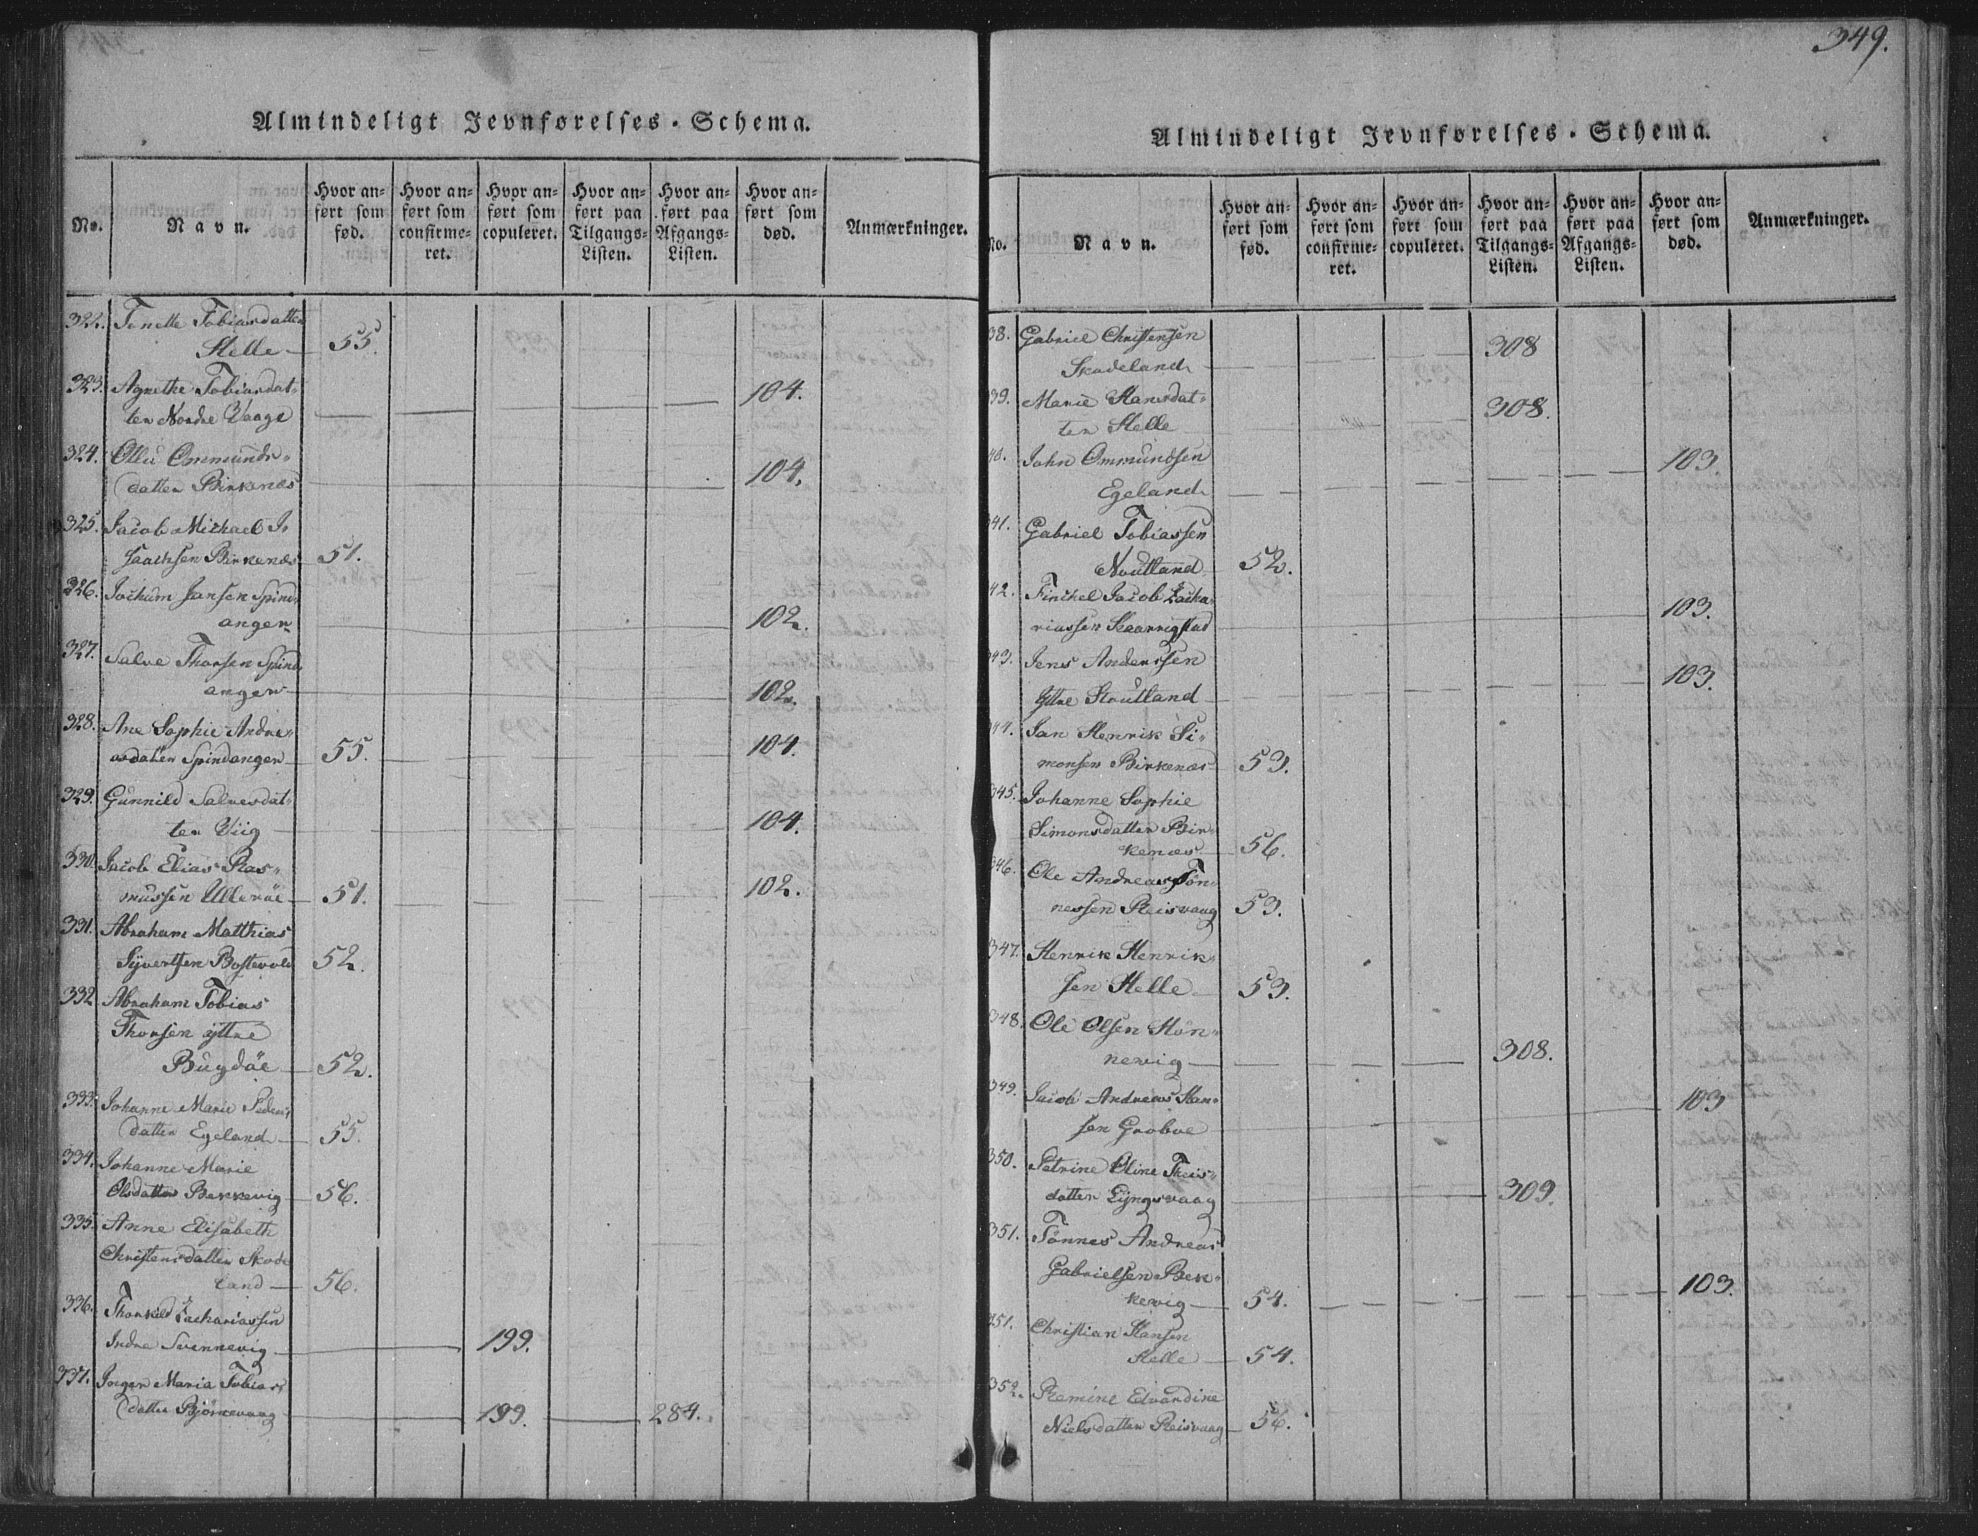 Almindeligt Jevnførelses-Schema.
No.
Navn.
Hvor an-
ført som
fød.
Hvor an-
ført som
confirme-
ret.
Hvor an-
ført som
copuleret.
Hvor an-
ført paa
Tilgangs-
Listen.
Hvor an-
ført paa
Afgangs-
Listen.
Hvor an-
ført som
død.
Anmærkninger.
322. Tonette Tobiasdatter
Helle 55.
323. Agnethe Tobiasdat-
ter Nordre Vaage 104.
324. Ollu Ommunds-
datter Birkenæs 104.
325. Jacob Michael I-
saachsen Birkenæs 51.
326. Jochum Jansen Spind-
anger 102.
327. Salve Thorsen Spind-
anger 102.
328. Ane Sophie Andre-
asdatter Spindanger 55. 104.
329. Gunnild Salvesdat-
ter Viig 104.
330. Jacob Elias Ras-
mussen Ullerøe 51. 102.
331. Abraham Matthias
Syvertsen Bostevold 52.
332 Abraham Tobias
Thorsen yttre
Bugdøe 52.
333. Johanne Marie Peders-
datter Egeland 55.
334. Johanne Marie
Olsdatter Bekkevig 56.
335. Anne Elisabeth
Christensdatter Skode-
land 56.
336. Thorkild Zachariassen
Indre Svennevig 199.
337. Inger Maria Tobias-
datter Bjørnevaag 199. 284.
349.
Almindeligt Jevnførelses-Schema.
No.
Navn.
Hvor an-
ført som
fød.
Hvor an-
ført som
confirme-
ret.
Hvor an-
ført som
copuleret.
Hvor an-
ført paa
Tilgangs-
Listen.
Hvor an-
ført paa
Afgangs-
Listen.
Hvor an-
ført som
død.
Anmærkninger.
38. Gabriel Christensen
Skodeland 308
39. Marie Hansdat-
ter Helle 308.
40. John Ommundsen
Egeland 103.
341. Gabriel Tobiassen
Noutland 52.
42. Finckel Jacob Zacha-
riassen Skarrigstad 103.
343. Jens Anderssen
Yttre Stoutland 103.
344. Jan Henrik Si-
monsen Birkenæs 53.
345. Johanne Sophie
Simonsdatter Bir-
kenæs 56.
346. Ole Andreas Tøn-
nessen Reisvaag 53.
347. Henrik Henrik-
sen Helle 53.
348. Ole Olsen Høn-
nevig 308.
349. Jacob Andreas Han-
sen Grobve 103
350. Petrine Oline Theis-
datter Lyngsvaag 309.
351. Tønnes Andreas
Gabrielsen Bek-
kevig 54. 103.
251. Christian Hansen
Helle 54.
352. Remine Edvardine
Nielsdatter Reisvaag 56.